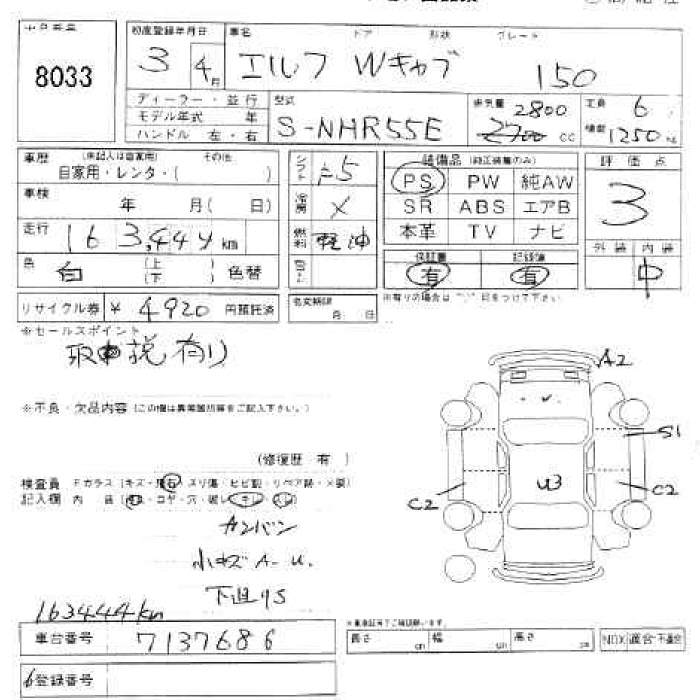 8033
初度登録年月日 車名 ドア 形状 グレード
3 4月 エルフ Wキャブ 150
ディーラー・並行
モデル年式 年
ハンドル 左・右
型式
S-NHR55E
排気量 2800
2700 cc
定員 6
積載 1250 kg
車歴 (未記入は自家用) その他
自家用・レンタ・( )
車検 年 月( 日)
走行 163,444 km
色 白 (上) (下) 色替
リサイクル券 ¥ 4920 円預託済
シフト F5
冷房 ×
燃料 軽油
名変期限
月 日
装備品 (純正装着のみ)
PS PW 純AW
SR ABS エアB
本革 TV ナビ
保証書 記録簿
有 有
※有りの場合は"○"印をつけて下さい
評価点
3
外装 内装
中
※セールスポイント
取説有り
※不良・欠品内容 (この欄は異常箇所等をご記入下さい。)
(修復歴 有 )
検査員 Fガラス (キズ・飛石・スリ傷・ヒビ割・リペア跡・×要)
記入欄 内 装
カンバン
小キズ A-U.
下廻りS
163444km
車台番号 7137686
登録番号
A2
S1
U3
C2
C2
※車検証を了ご確認願います。
長さ cm 幅 cm 高さ cm
NOX 適合・不適合